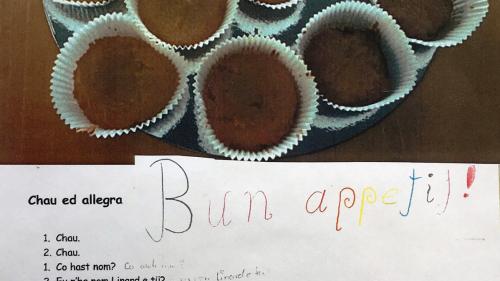 Bun appetit!
Chau ed allegra
1. Chau.
2. Chau.
1. Co hast nom? Co
2. Eu n'ha nom Linard e tü?